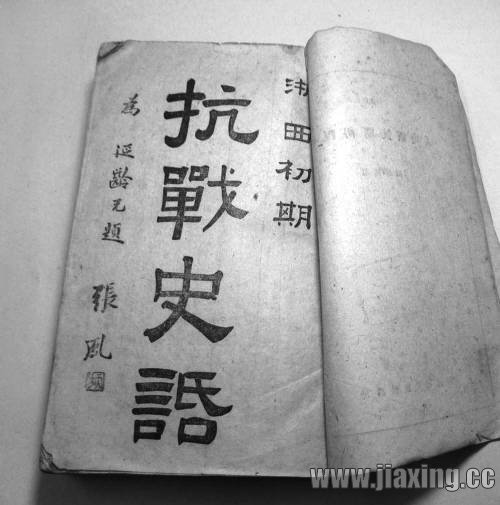 浙西初期
抗戰史話
為
延齡兄題
張鳳
www.jiaxing.cc